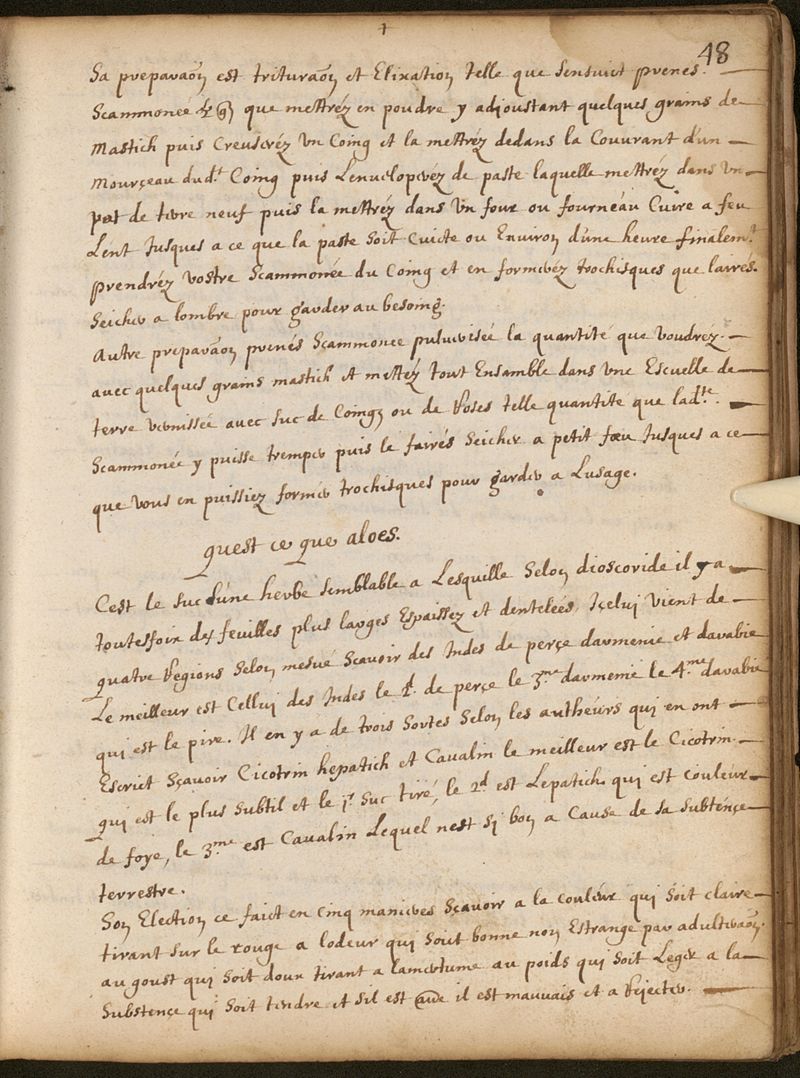 48
Sa preparaõn est trituraõn et Elixation telle que sensuict prenes.
Scammoneé que mettréz en poudre y adjoustant quelques grains de
Mastich puis Creuseréz Un Coing et la mettréz dedans la Couurant d'un
Mourçeau dud.t Coing puis Lenueloperéz de paste laquelle mettréz dans Un
pot de terre neuf puis la mettréz dans Un four ou fourneau Cuire a feu
Lent Jusques a ce que la paste soit Cuicte ou Enuiron d'une heure finalem.t
prendréz vostre Scammonée du Coing et en formeréz trochisques que lairrés.
Seicher a lombre pour garder au besoing.
Autre preparaõn prenés Scammonee puluerisée la quantité que voudrez.
avec quelques grains mastich et mettéz tout Ensamble dans vne Escuelle de
terre vernissée avec suc de Coings ou de Roses telle quantite que lad.te
Scammonée y puisse tremper puis le fairés Seicher a petit fœu Jusques a ce
que vous en puissiez former trochisques pour garder a Lusage.
quest ce que aloes.
C'est le suc d'une herbe semblable a Lesquille Selon dioscoride il y a
toutesfois des feuilles plus larges Espaissez et dentelées, Içelui Vient de
quatre Regions Selon mesué Scavoir des Indes de perçe d'armenie et darabie
Le meilleur est Cellui des Indes le 2.d de perçe le 3.me darmenie le 4.me darabie
qui est le pire. Il en y a de trois Sortes Selon les autheurs qui en ont
Escriet Sçavoir Cicotrin hepatich et Cavalin le meilleur est le Cicotrin.
qui est le plus Subtil et le p.r Suc tiré, le 2.d est Lepatich qui est couleur
de foye, le 3.me est Cavalin Lequel nest si bon a Cause de sa Subtençe
terrestre.
Son Election ce faict en Cinq manieres Sçavoir a la couleur qui Soit claire
tirant sur le rouge a lodeur qui Soict bonne non Estrange par adulteraõn.
au goust qui soit doux tirant a lamertume au poids qui soit Leger a la
Substençe qui Soit tendre et sil est il est mauvais et a Rejecter.